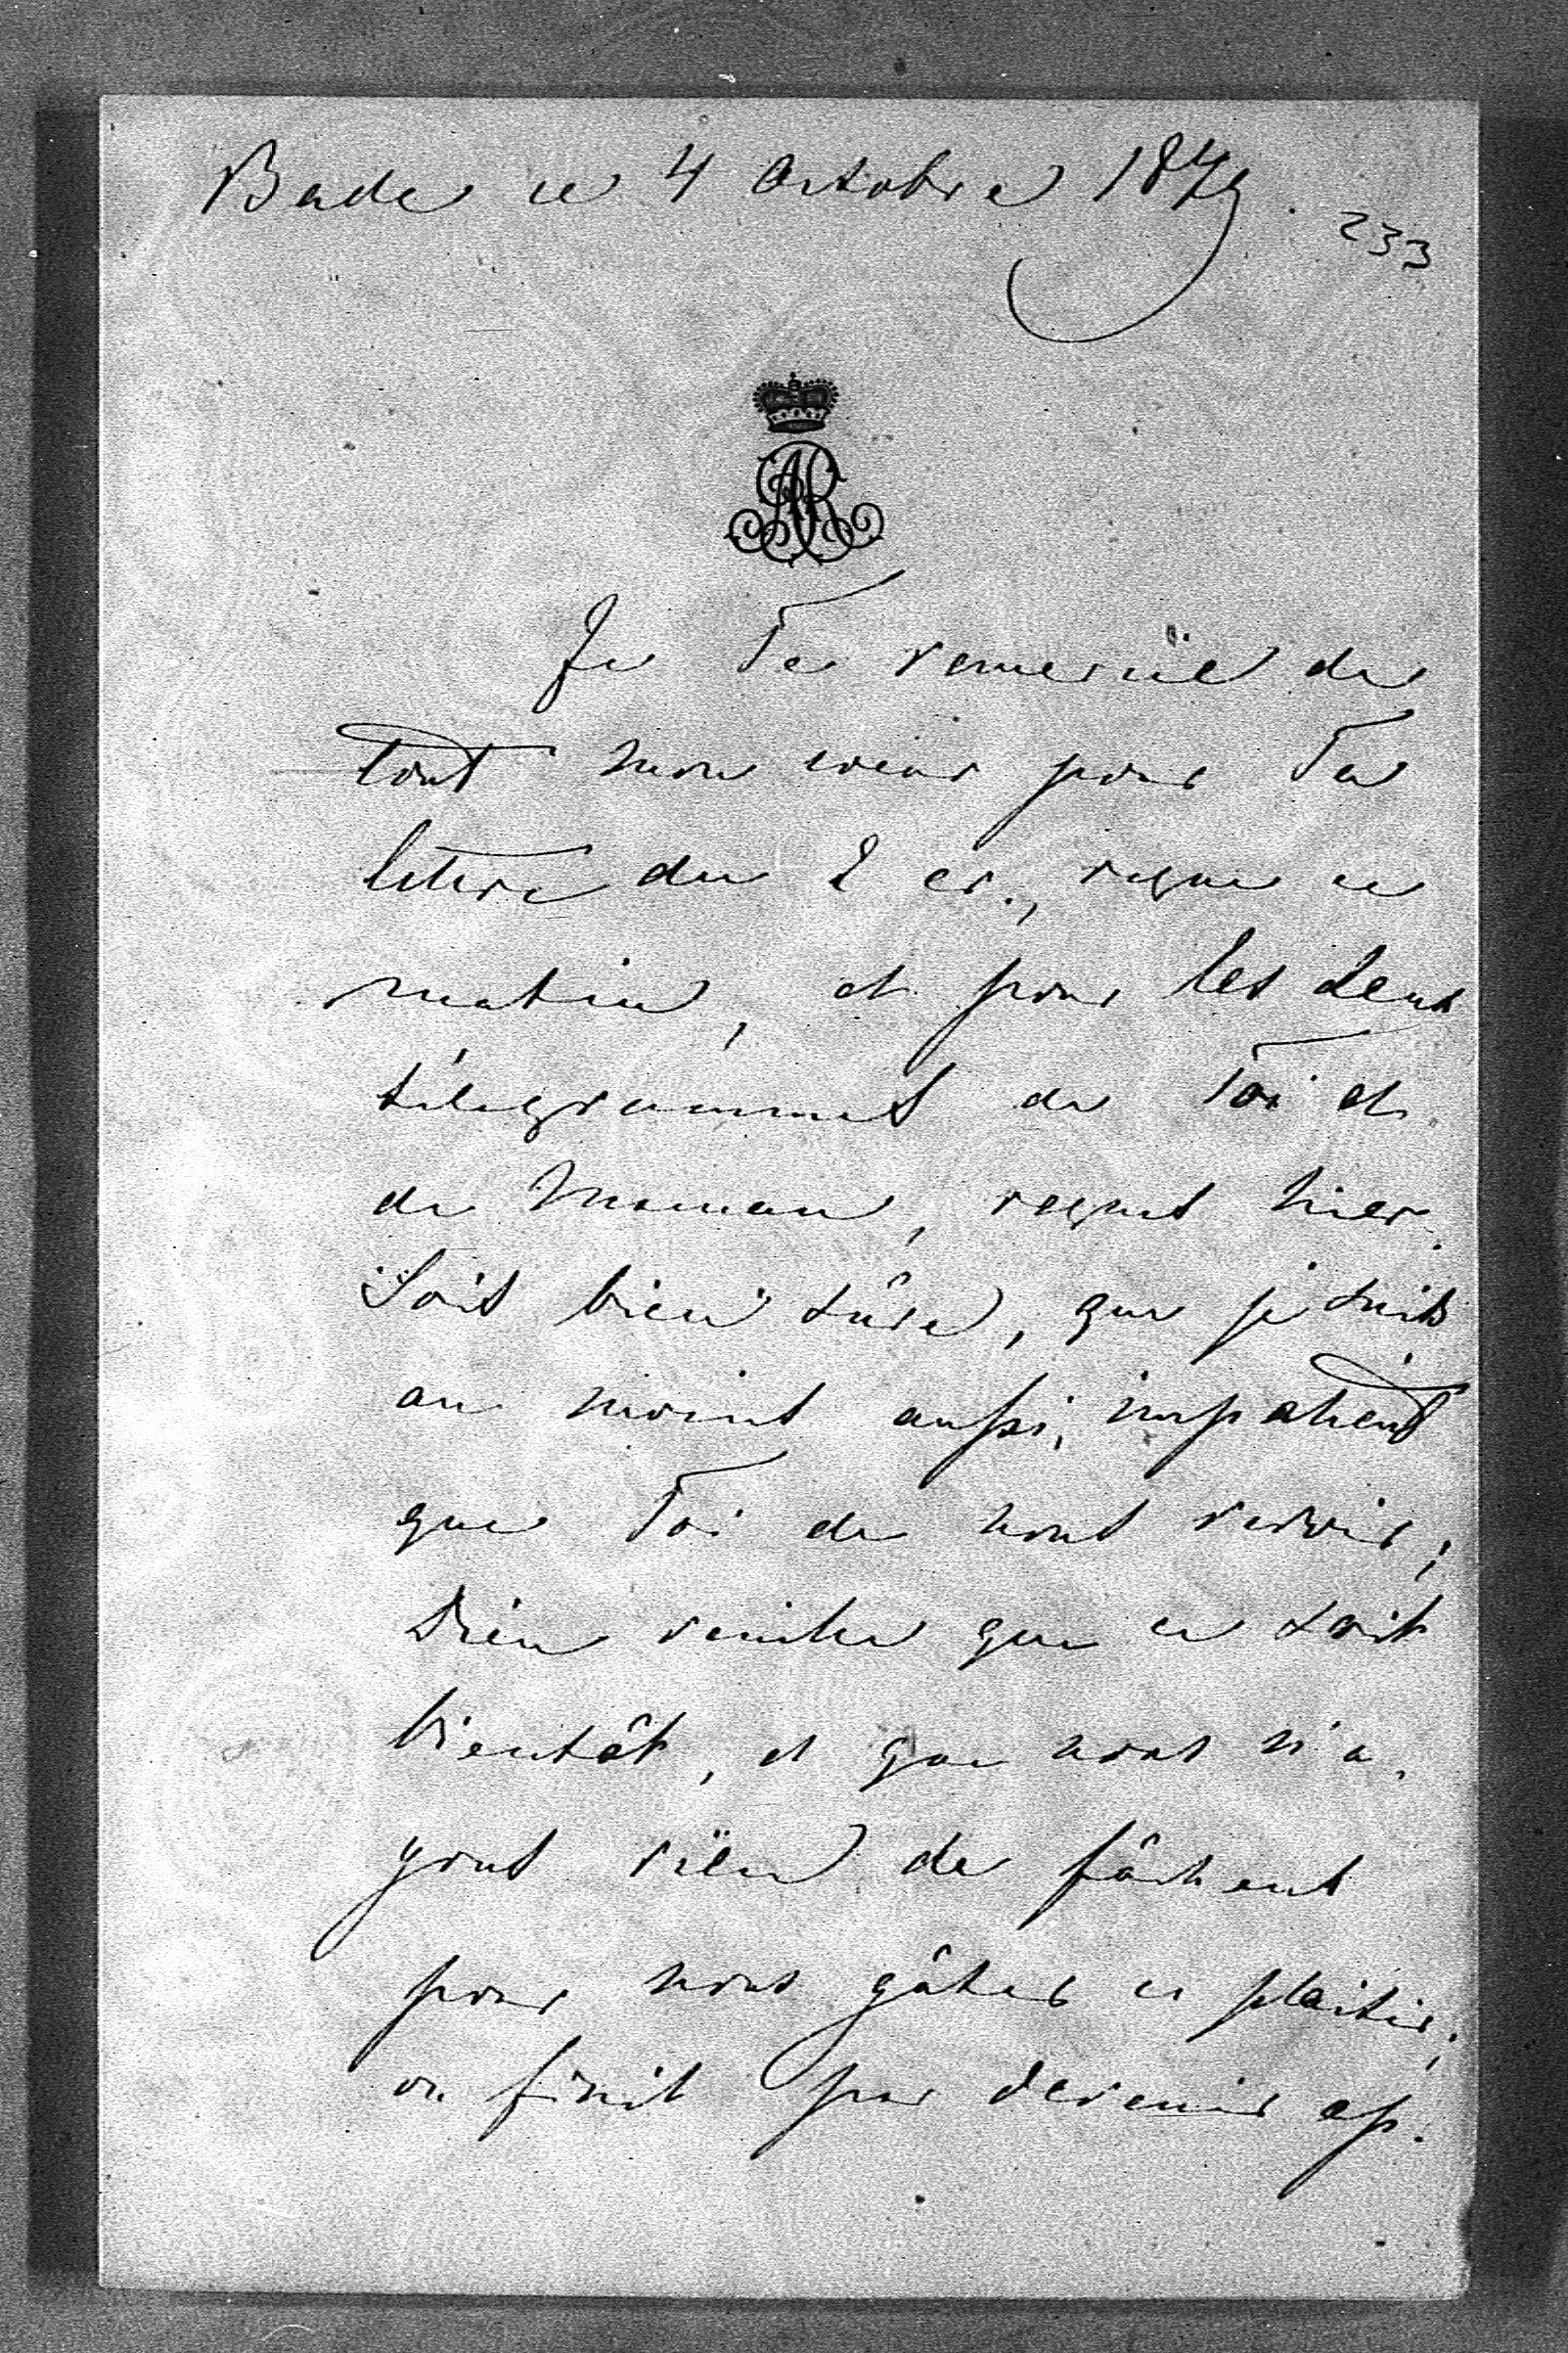 Bade ce 4 Octobre 1879.
233
AR
Je Te remercïe de
tout mon cœur pour Ta
lettre du 2 cr., reçue ce
matin, et pour les deux
télegrammes de Toi et
de Maman, reçus hier.
Sois bien sûre, que je suis
au moins aussi impatient
que Toi de nous revoir;
Dieu veuille que ce soit
bientôt, et que nous n'a-
yons rïen de fâcheux
pour nous gâter ce plaisir;
on finit par devenir ap-